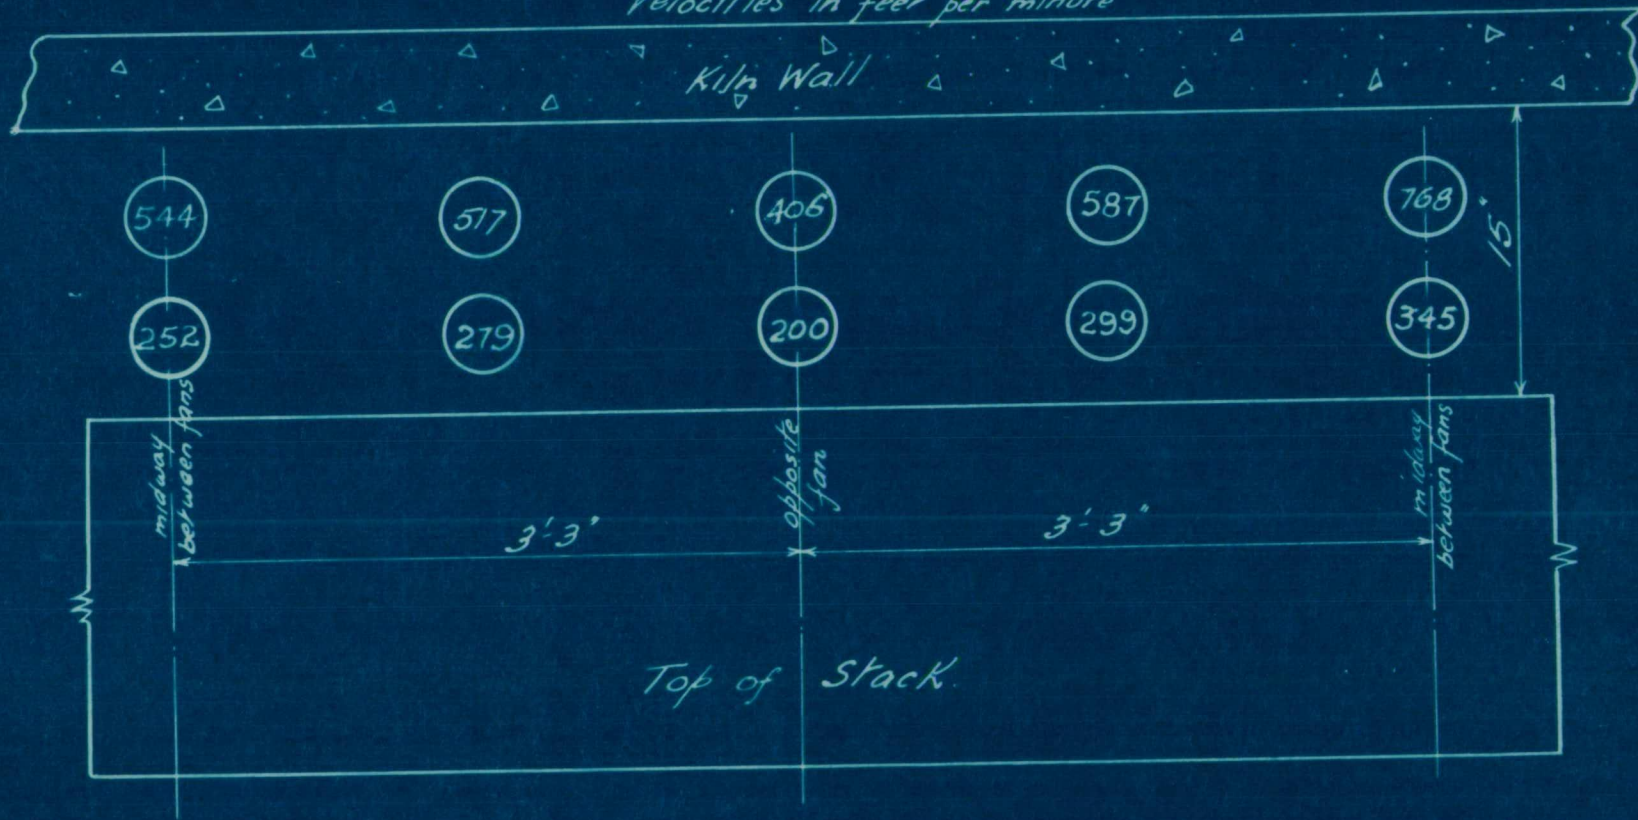 Velocities in feet per minute
Kiln Wall
544 517 406 587 768
15"
252 279 200 299 345
midway
between fans
opposite
fan
midway
between fans
3'-3" 3'-3"
Top of Stack.